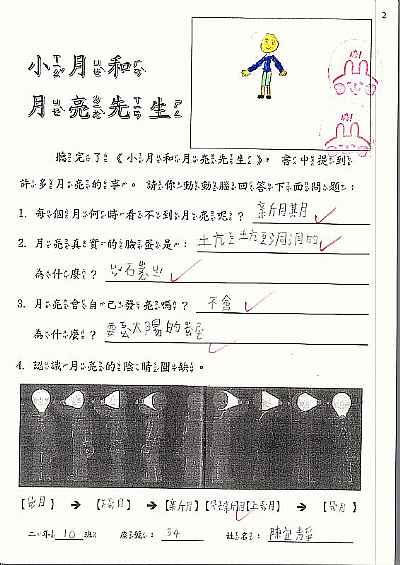 2
小月和
月亮先生
聽完了《小月和月亮先生》，書中提到
許多月亮的事。請你動動腦回答下面問題：
1. 每個月何時看不到月亮呢？新月期月
2. 月亮真實的臉蛋是：土亢土亢洞洞的
為什麼？
3. 月亮會自己發亮嗎？不會
為什麼？太陽的
4. 認識月亮的陰晴圓缺。
【月】→【月】→【新月】【月】【月】→【月】
二年10班 座號：34 姓名：陳宜